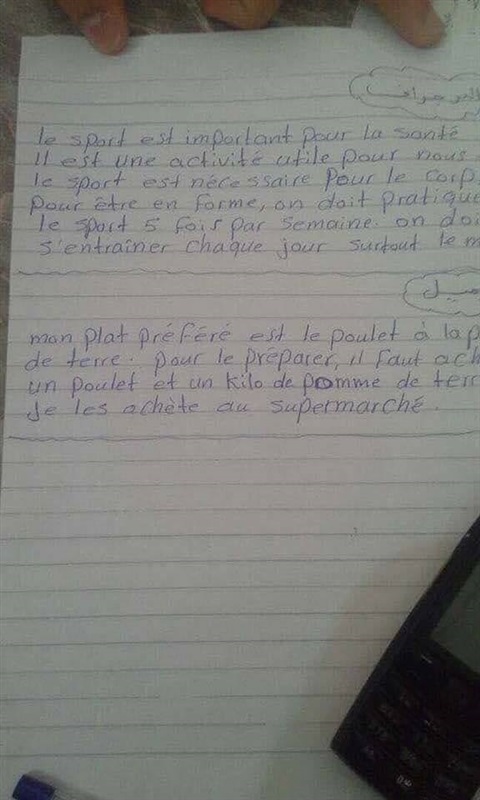 البرجراف
le sport est important pour la santé
il est une activité utile pour nous
le sport est nécessaire pour le corp
pour être en forme, on doit pratique
le sport 5 fois par semaine. on doi
s'entraîner chaque jour surtout le m
ميل
mon plat préféré est le poulet à la p
de terre. pour le préparer, il faut ach
un poulet et un kilo de pomme de terr
Je les achète au supermarché.